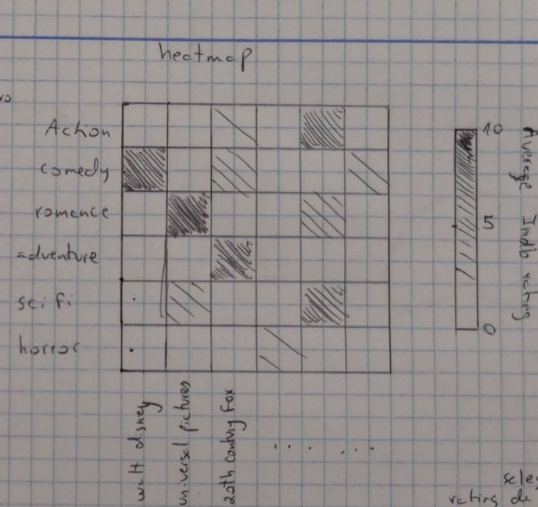 heatmap
Action
comedy
romance
adventure
sci fi
horror
walt disney
universal pictures
20th century fox
10
5
0
Average Imdb rating
rating de